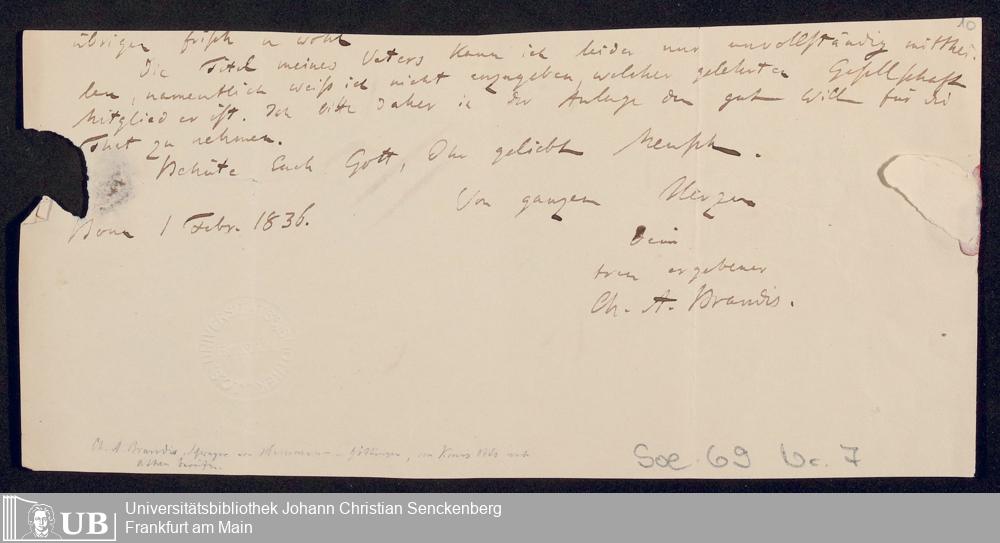 10
übrigen frisch u wohl
Die Titel meines Vaters kann ich leider nur unvollständig mitthei-
len, namentlich weiß ich nicht anzugeben, welcher gelehrten Gesellschaft
Mitglied er ist. Ich bitte daher in der Anlage den guten Willen für die
That zu nehmen.
Behüte Euch Gott, Ihr geliebten Menschen.
Von ganzem Herzen
Bonn 1 Febr. 1836.
Dein
treu ergebener
Ch. A. Brandis.
Ch. A. Brandis, in Göttingen,
Soe. 69 Nr. 7
UB
Universitätsbibliothek Johann Christian Senckenberg
Frankfurt am Main